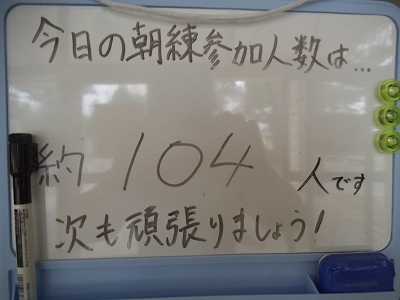 今日の朝練参加人数は…
約104人です
次も頑張りましょう!